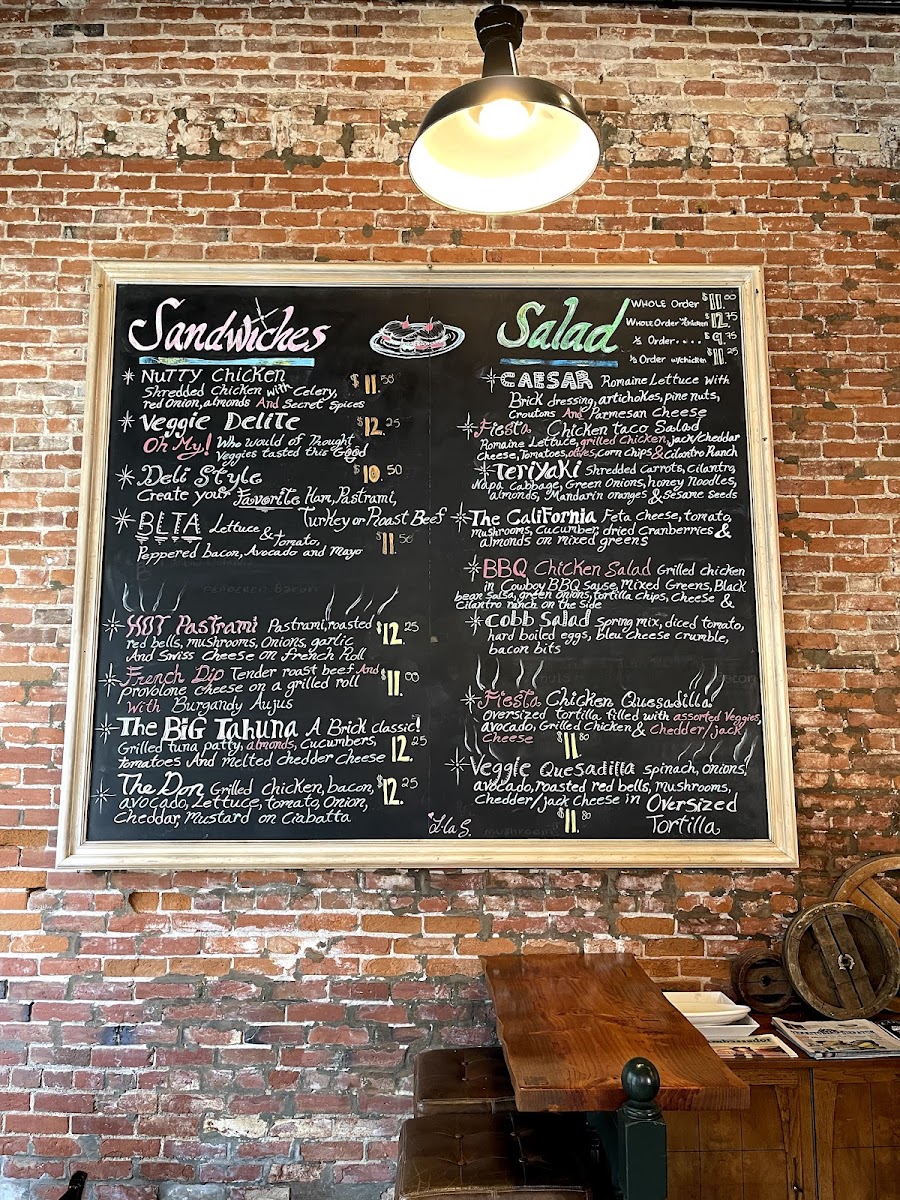 Sandwiches
* Nutty Chicken $11.50
Shredded Chicken with Celery,
red Onion, almonds And Secret Spices
* Veggie Delite $12.25
Oh My! Who would of Thought
Veggies tasted this Good
* Deli Style $10.50
Create your Favorite Ham, Pastrami,
Turkey or Roast Beef
* BLTA Lettuce & Tomato,
Peppered bacon, Avocado and Mayo $11.50
* HOT Pastrami Pastrami, roasted $12.25
red bells, mushrooms, Onions, garlic
And Swiss cheese on french Roll
* French Dip Tender roast beef And $11.00
provolone cheese on a grilled roll
with Burgandy Aujus
* The BIG Tahuna A Brick classic!
Grilled tuna patty, almonds, Cucumbers, 12.25
tomatoes And melted chedder cheese
* The Don Grilled chicken, bacon, $12.25
avocado, Lettuce, tomato, Onion,
Cheddar, Mustard on Ciabatta
Salad
WHOLE Order $11.00
WHOLE Order w/chicken $12.75
½ Order.... $9.75
½ Order w/chicken $11.25
* CAESAR Romaine Lettuce with
Brick dressing, artichokes, pine nuts,
Croutons And Parmesan Cheese
* Fiesta Chicken taco Salad
Romaine Lettuce, grilled Chicken, jack/cheddar
Cheese, Tomatoes, olives, corn chips & Cilantro Ranch
* Teriyaki Shredded Carrots, cilantro,
Napa Cabbage, Green Onions, honey Noodles,
almonds, Mandarin oranges & Sesame seeds
* The California Feta cheese, tomato,
mushrooms, Cucumber, dried Cranberries &
almonds on mixed greens
* BBQ Chicken Salad Grilled chicken
in Cowboy BBQ sause, Mixed Greens, Black
bean salsa, green onions, tortilla chips, cheese &
Cilantro ranch on the side
* Cobb Salad Spring mix, diced tomato,
hard boiled eggs, bleu cheese crumble,
bacon bits
* Fiesta Chicken Quesadilla
Oversized tortilla filled with assorted Veggies,
avocado, Grilled Chicken & Chedder/jack
Cheese $11.80
* Veggie Quesadilla spinach, onions,
avocado, roasted red bells, Mushrooms,
Chedder/jack Cheese in Oversized
Tortilla
$11.80